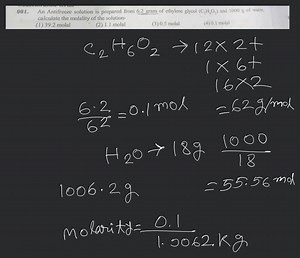 881. An Antifreeze solution is prepared from 6.2 gram of ethylene glycol (C₂H₆O₂) and 1000 g of water,
calculate the molality of the solution-
(1) 39.2 molal (2) 1.1 molal (3) 0.5 molal (4) 0.1 molal
C₂H₆O₂ → 12×2+
1×6+
16×2
6.2/62 = 0.1 mol = 62 g/mol
H₂O → 18g 1000/18
1006.2 g = 55.56 mol
Molarity = 0.1/1.0062 Kg